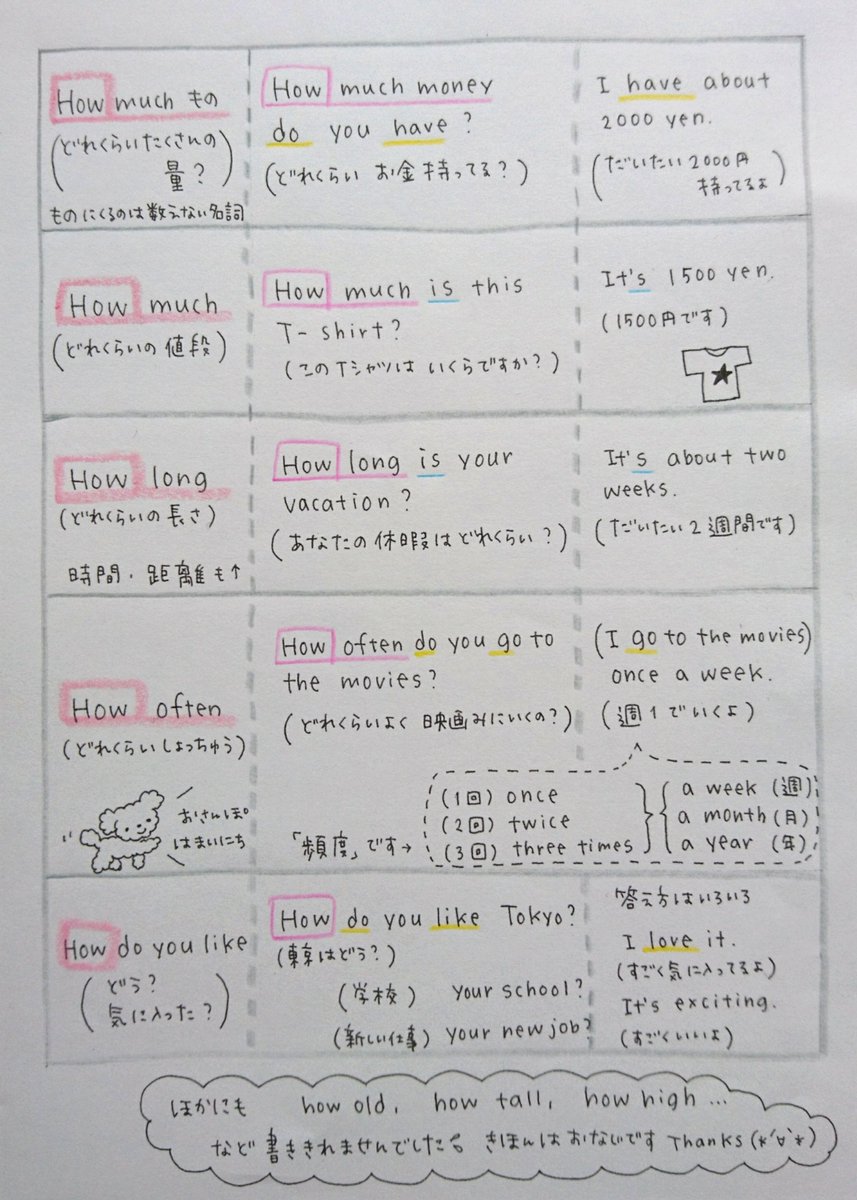 How much もの
(どれくらいたくさんの
量?)
ものにくるのは数えない名詞
How much money
do you have?
(どれくらい お金持ってる?)
I have about
2000 yen.
(だいたい2000円
持ってるよ)
How much
(どれくらいの値段)
How much is this
T-shirt?
(このTシャツは いくらですか?)
It's 1500 yen.
(1500円です)
How long
(どれくらいの長さ)
時間・距離も↑
How long is your
vacation?
(あなたの休暇はどれくらい?)
It's about two
weeks.
(だいたい2週間です)
How often
(どれくらいしょっちゅう)
おさんぽ
はまいにち
How often do you go to
the movies?
(どれくらいよく 映画みにいくの?)
(I go to the movies)
once a week.
(週1でいくよ)
「頻度」です→
(1回) once
(2回) twice
(3回) three times
a week (週)
a month (月)
a year (年)
How do you like
(どう?
気に入った?)
How do you like Tokyo?
(東京はどう?)
(学校) your school?
(新しい仕事) your new job?
答え方はいろいろ
I love it.
(すごく気に入ってるよ)
It's exciting.
(すごくいいよ)
ほかにも how old, how tall, how high...
など書ききれませんでした きほんはおなじです Thanks(*'∀`*)